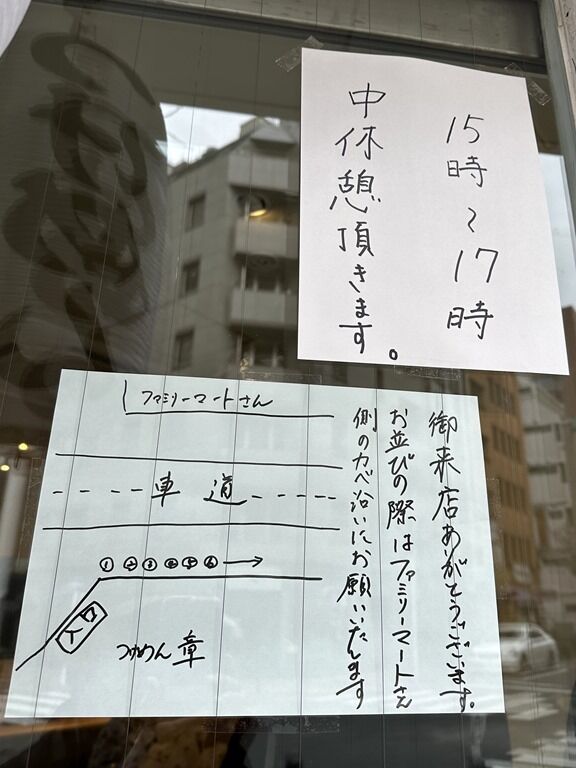 15時〜17時
中休憩頂きます。
御来店ありがとうございます。
お並びの際はファミリーマートさん
側のカベ沿いにお願いいたします
ファミリーマートさん
車道
①②③④⑤⑥
入口
つけめん 章